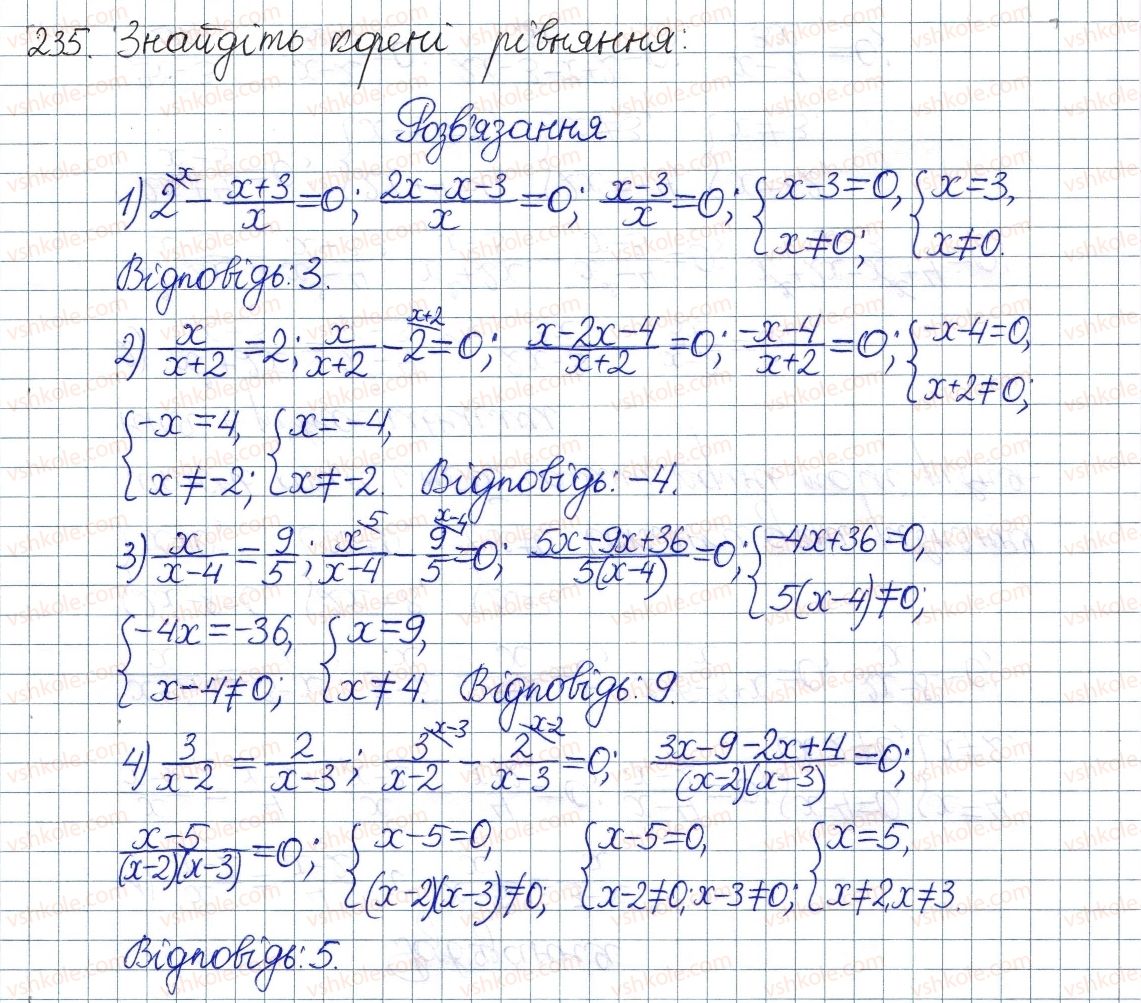 235. Знайдіть корені рівняння:
Розв'язання
1) 2^{\x} - (x+3)/x = 0; (2x-x-3)/x = 0; (x-3)/x = 0; { x-3=0, x≠0; { x=3, x≠0.
Відповідь: 3.
2) x/(x+2) = 2; x/(x+2) - 2^{\x+2} = 0; (x-2x-4)/(x+2) = 0; (-x-4)/(x+2) = 0; { -x-4=0, x+2≠0;
{ -x=4, x≠-2; { x=-4, x≠-2. Відповідь: -4.
3) x/(x-4) = 9/5; x^{\5}/(x-4) - 9^{\x-4}/5 = 0; (5x-9x+36)/(5(x-4)) = 0; { -4x+36=0, 5(x-4)≠0;
{ -4x=-36, x-4≠0; { x=9, x≠4. Відповідь: 9.
4) 3/(x-2) = 2/(x-3); 3^{\x-3}/(x-2) - 2^{\x-2}/(x-3) = 0; (3x-9-2x+4)/((x-2)(x-3)) = 0;
(x-5)/((x-2)(x-3)) = 0; { x-5=0, (x-2)(x-3)≠0; { x-5=0, x-2≠0; x-3≠0; { x=5, x≠2, x≠3.
Відповідь: 5.
vshkole.com